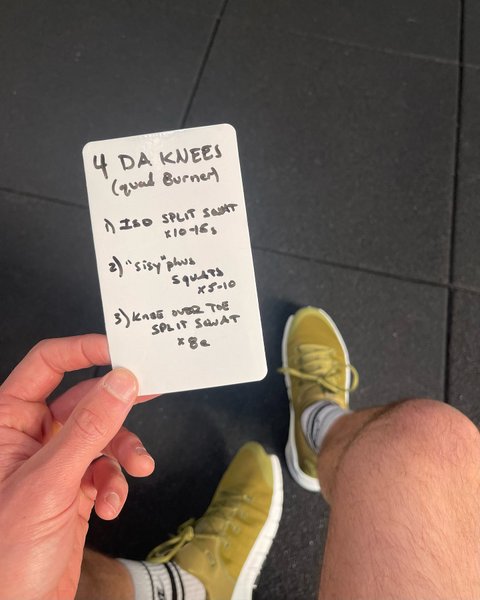 4 DA KNEES
(quad Burner)
1) ISO SPLIT SQUAT
x10-15s
2) "sisy" plus
SQUATS
x5-10
3) KNEE OVER TOE
SPLIT SQUAT
x 8e